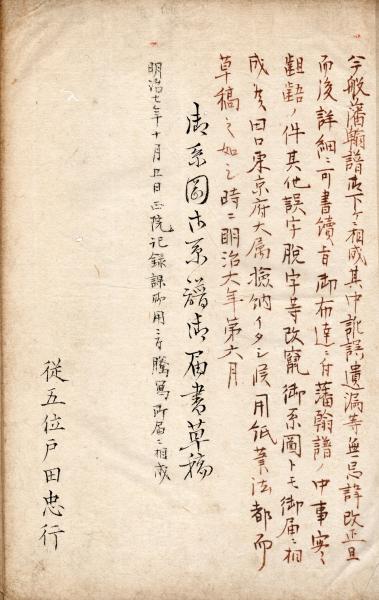 今般藩翰譜御下ケニ相成其中訛誤遺漏等無忌諱改正且
而後詳細ニ可書續旨御布達ニ付藩翰譜ノ中事実
齟齬ノ件其他誤字脱字等改竄御系圖トモ御届ニ相
成候東京府大属 納イタシ候用紙筆法都而
草稿之如シ時ニ明治六年第六月
御系圖御系譜御届書草稿
明治七年十月五日正院記録課御用ニ付騰寫所届ニ相成
従五位戸田忠行